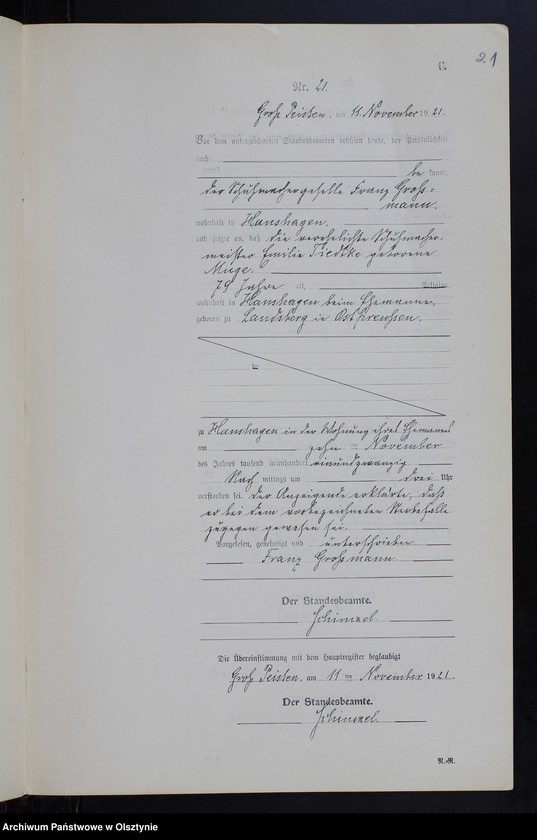 21
C.
Nr. 21.
Groß Peisten, am 11. November 1921.
Vor dem unterzeichneten Standesbeamten erschien heute, der Persönlichkeit
nach
be kannt,
der Schuhmachergeselle Franz Groß=
mann,
wohnhaft in Hanshagen,
und zeigte an, daß die verehelichte Schuhmacher-
meister Emilie Tiedtke geborene
Muge,
79 Jahre alt, Religion
wohnhaft in Hanshagen beim Ehemanne,
geboren zu Landsberg in Ostpreussen,
zu Hanshagen in der Wohnung ihres Ehemannes
am zehn ten November
des Jahres tausend neunhundert einundzwanzig
Nach mittags um drei Uhr
verstorben sei. Der Anzeigende erklärte, daß
er bei dem vorbezeichneten Sterbefalle
zugegen gewesen sei.
Vorgelesen, genehmigt und unterschrieben
Franz Grossmann
Der Standesbeamte.
Schimzel
Die Übereinstimmung mit dem Hauptregister beglaubigt
Groß Peisten, am 11 ten November 1921.
Der Standesbeamte.
Schimzel
N.-R.
Archiwum Państwowe w Olsztynie